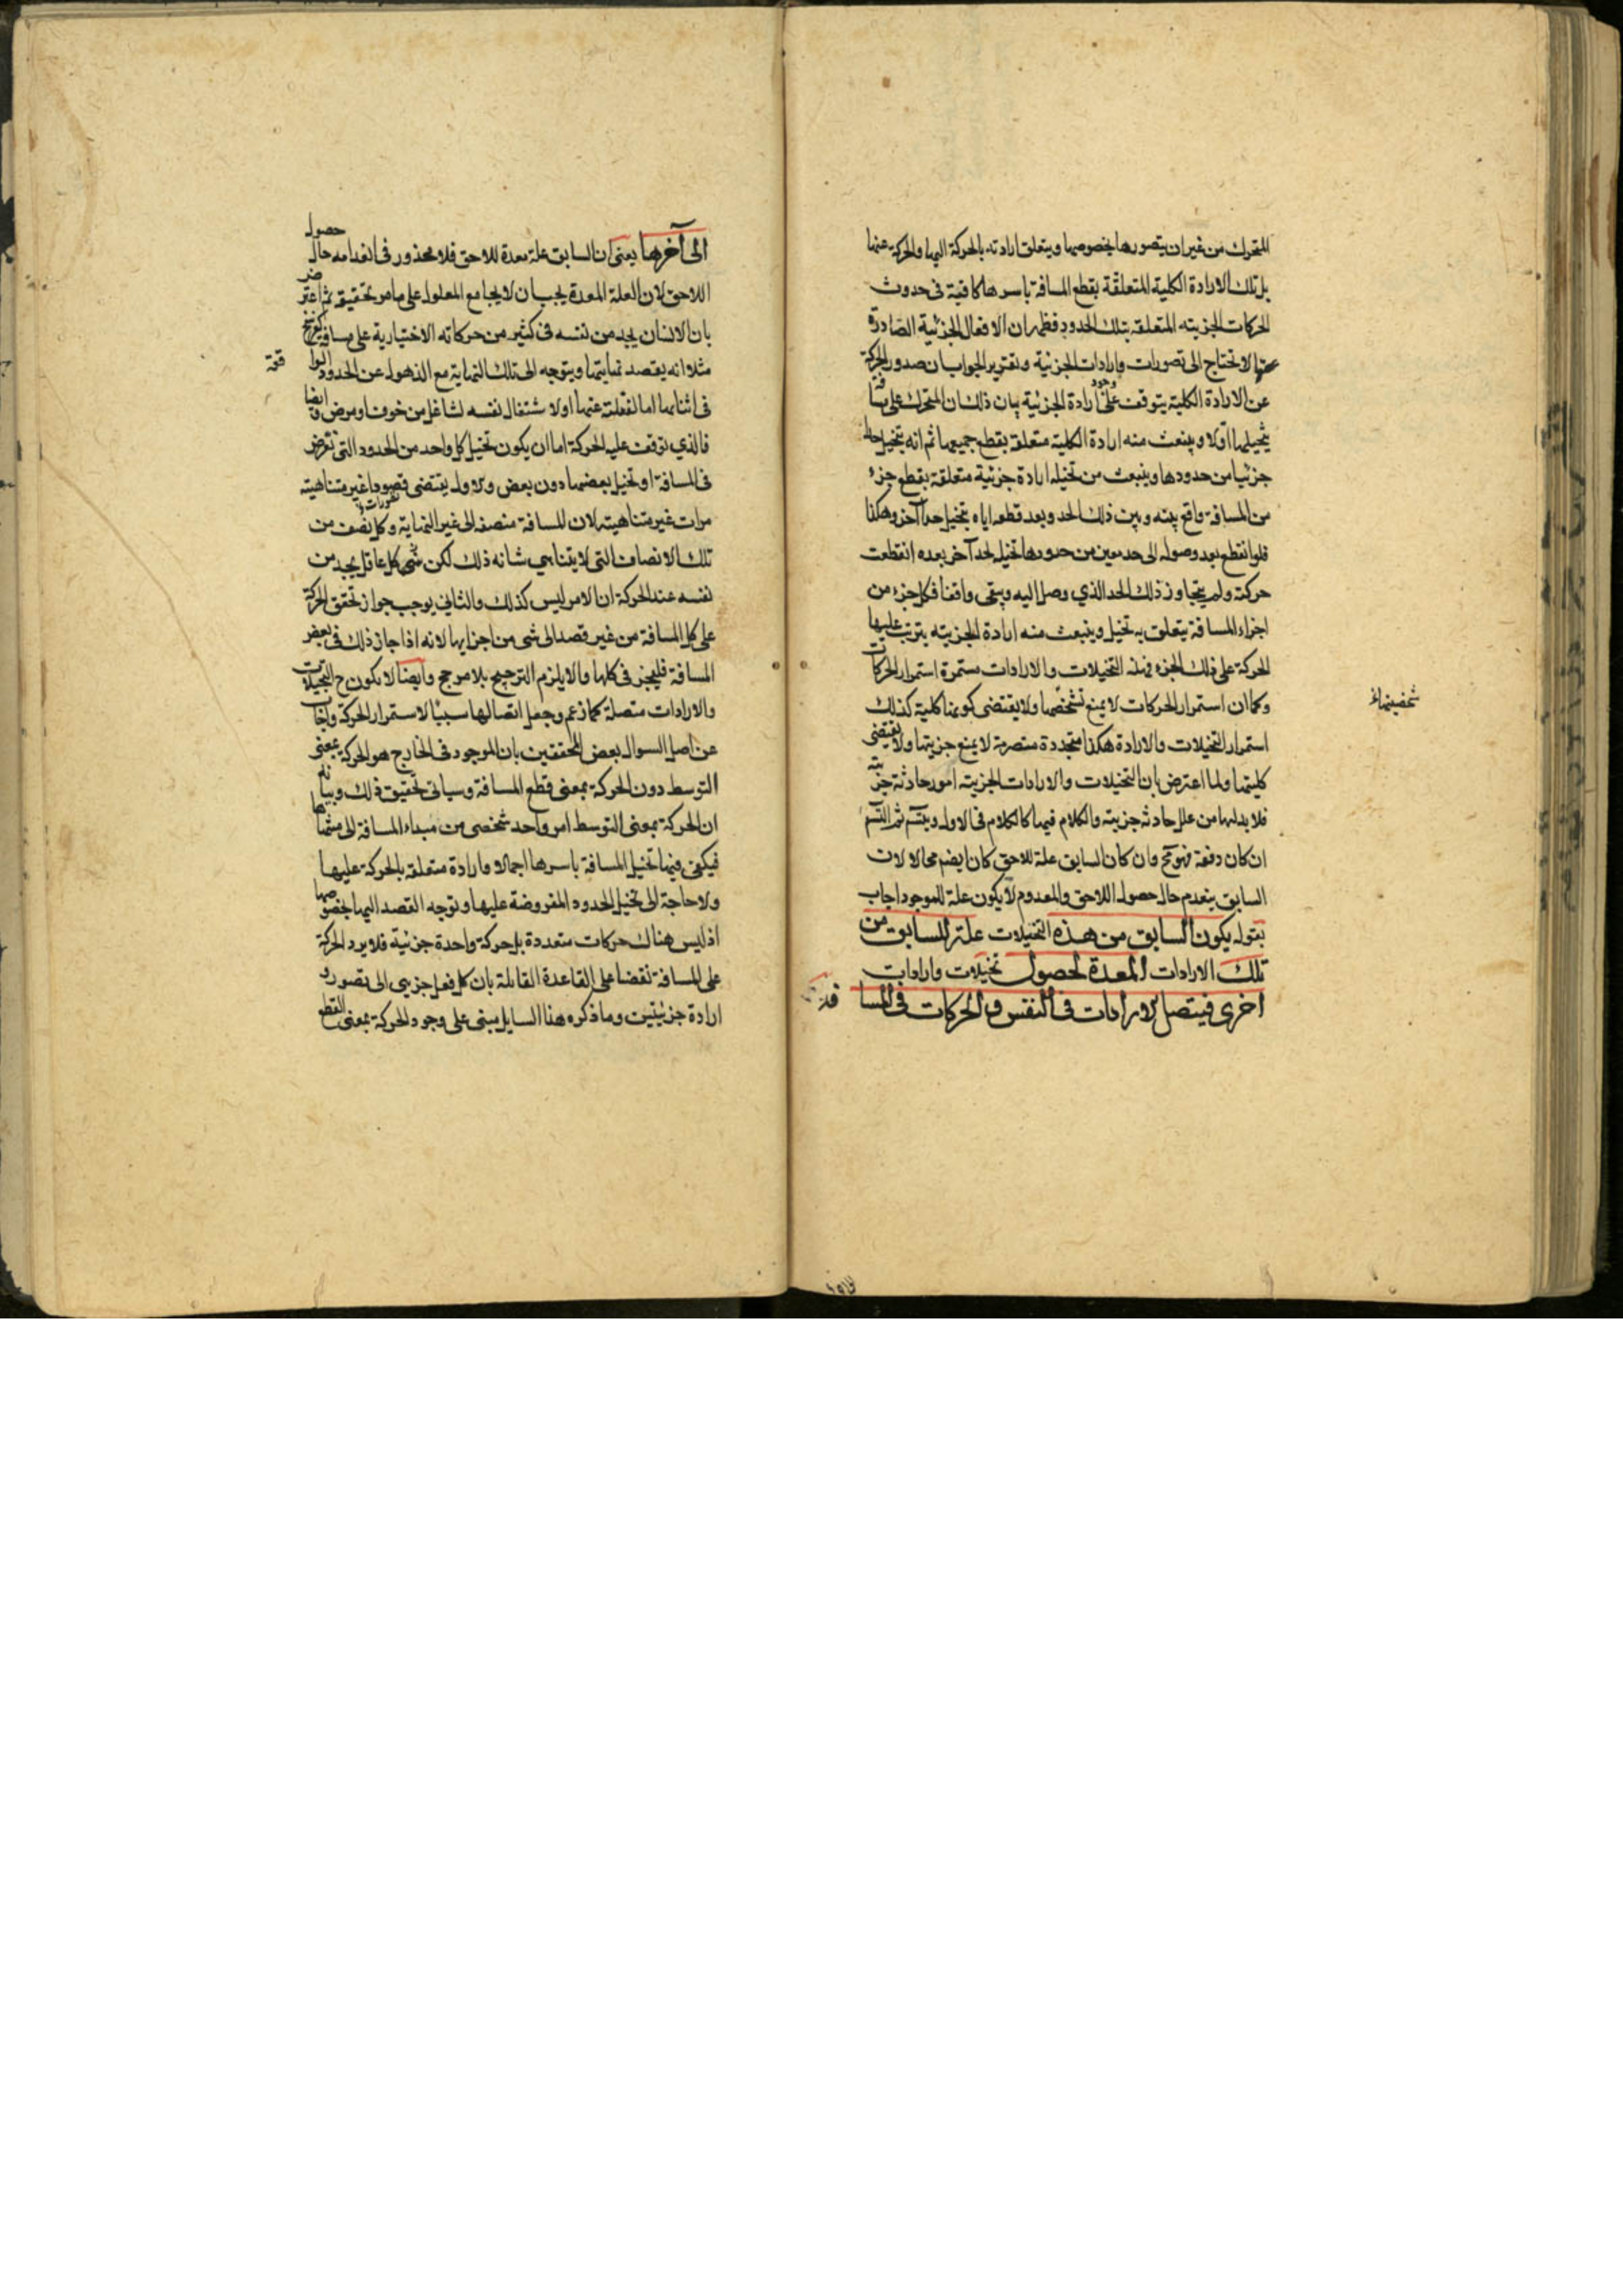 المتحرك من غير ان يتصورها بخصوصها ويتعلق ارادته بالحركة اليها والحركة عنها
بل تلك الارادة الكلية المتعلقة بقطع المسافة باسرها كافية فى حدوث
الحركات الجزئيه المتعلقه بتلك الحدود فظهر ان الافعال الجزئية الصادرة
عنها لا تحتاج الى تصورات وارادات الجزئية وتقرير الجواب ان صدور الحركة
عن الارادة الكلية يتوقف على وجود ارادة الجزئية بيان ذلك ان المتحرك على مسافة
يتخيلها اولا وينبعث منه ارادة الكلية متعلقه بقطع جميعها ثم انه يتخيل حدا
جزئيا من حدودها وينبعث من تخيله ارادة جزئية متعلقة بقطع جزء
من المسافة واقع بينه وبين ذلك الحد وبعد قطعه اياه يتخيل حدا آخر وهكذا
فلو انقطع بعد وصوله الى حد معين من حدودها تخيل لحد آخر بعده انقطعت
حركة ولم يتجاوز ذلك الحد الذي وصل اليه ويبقى واقفا فكل جزء من
اجزاء المسافة يتعلق به تخيل وينبعث منه ارادة الجزئيه يترتب عليها
الحركة على ذلك الجزء فهذه التخيلات والارادات مستمرة استمرار الحركات
وكما ان استمرار الحركات لا يمنع تشخصها ولا يقتضى كونها كلية كذلك
استمرار التخيلات والارادة هكذا متجددة متصرمة لا يمنع جزئيتها ولا يقتضى
كليتها ولما اعترض بان التخيلات والارادات الجزئيه امور حادثة جزئية
فلا بد لها من علل حادثه جزئيه والكلام فيها كالكلام فى الاول ويتسلسل ثم التسلسل
ان كان دفعة فهو مح وان كان السابق علة للاحق كان ايضا محالا لان
السابق ينعدم حال حصول اللاحق والمعدوم لا يكون علة للموجود اجاب
بقوله يكون السابق من هذه التخيلات علة للسابق من
تلك الارادات المعدة لحصول تخيلات وارادات
اخرى فيتصل الارادات فى النفس والحركات فى المسافة
الى آخرها يعنى ان السابق علة معدة للاحق فلا محذور فى انعدامه حال حصول
اللاحق لان العلة المعدة يجب ان لا يجامع المعلول على ما مر تحقيقه ثم اعترض
بان الانسان يجد من نفسه فى كثير من حركاته الاختيارية على مسافة
مثلا انه يقصد نهايتها ويتوجه الى تلك النهاية مع الذهول عن الحدود الواقعة
فى اثنائها اما لغفلته عنها او لاشتغال نفسه لشاغل من خوف او مرض وايضا
فالذي توقف عليه الحركة اما ان يكون تخيل كل واحد من الحدود التى تفرض
فى المسافة او تخيل بعضها دون بعض والاول يقتضى قصودا غير متناهيته
مرات غير متناهيته لان للمسافة منصفه الى غير النهاية وكل نصف من
تلك الانصاف التى لا يتناهي شانه ذلك لكن كل عاقل يجد من
نفسه عند الحركة ان الامر ليس كذلك والثاني يوجب جواز تحقق الحركة
على كل المسافة من غير قصد الى شى من اجزايها لانه اذا جاز ذلك فى بعض
المسافة فليجز فى كلها والا يلزم الترجيح بلا مرجح وايضا لا يكون ح التخيلات
والارادات متصلة كما زعم وجعل اتصالها سببا لاستمرار الحركة واجاب
عن اصل السوال بعض المحققين بان الموجود فى الخارج هو الحركة بمعنى
التوسط دون الحركة بمعنى قطع المسافة وسياتى تحقيق ذلك وبيانه
ان الحركة بمعنى التوسط امر واحد شخصى من مبداء المسافة الى منتهاها
فيكفى فيها تخيل المسافة باسرها اجمالا وارادة متعلقه بالحركة عليها
ولا حاجة الى تخيل الحدود المفروضة عليها وتوجه القصد اليها بخصوصها
اذ ليس هناك حركات متعددة بل حركة واحدة جزئية فلا يرد الحركة
على المسافة نقضا على القاعدة القايلة بان كل فعل جزيى الى تصور و
ارادة جزئيتين وما ذكره هذا السايل مبنى على وجود الحركة بمعنى القطع